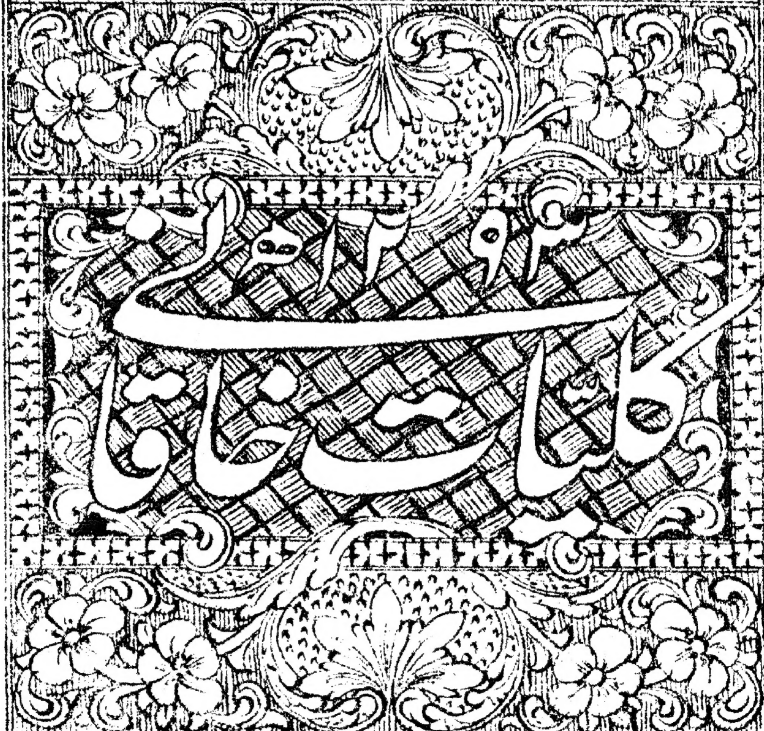 ۱۲۹۳ھ
کلیات خاقانی